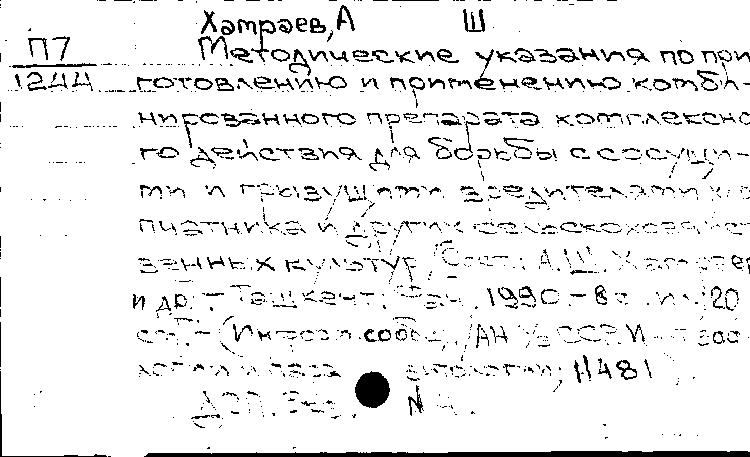 Хамраев, А Ш
П7 Методические указания по при
1244 готовлению и применению комби-
нированного препарата комплексно
го действия для борьбы с сосущи-
ми и грызущими вредителями хло
пчатника и других сельскохозяйст
венных культур / Сост.: А.Ш. Хамраев
и др. - Ташкент: Фан, 1990. - 8 с. ил; 20
см. - (Информ. сообщ. / АН УзССР. И зоо
логии и пара зитологии; N481).
N 4.